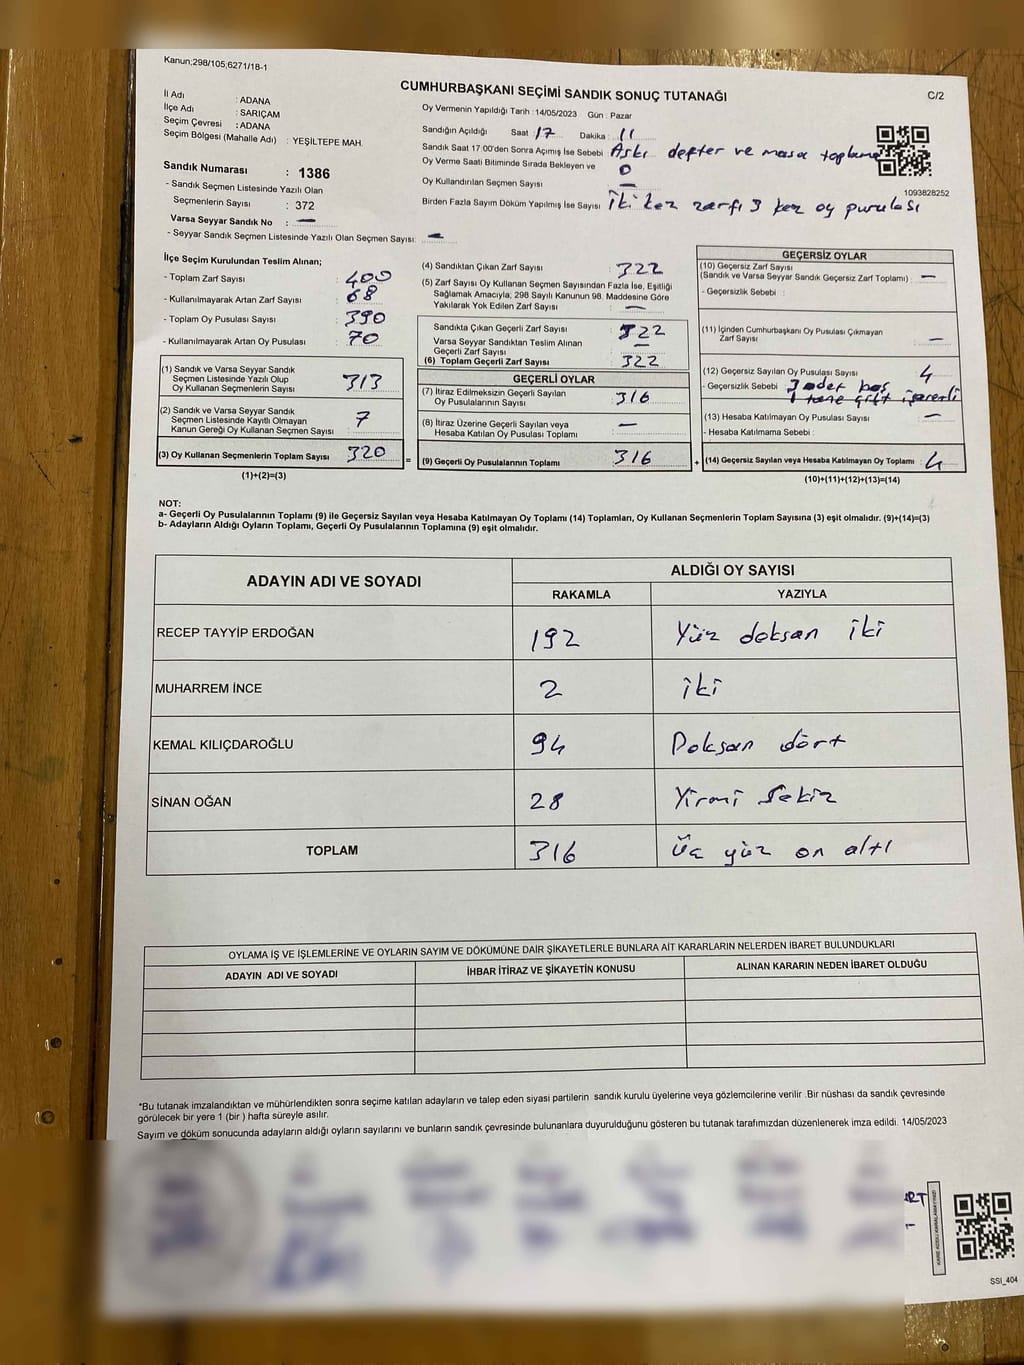 Kanun;298/105;6271/18-1
CUMHURBAŞKANI SEÇİMİ SANDIK SONUÇ TUTANAĞI
C/2
İl Adı : ADANA
İlçe Adı : SARIÇAM
Seçim Çevresi : ADANA
Seçim Bölgesi (Mahalle Adı) : YEŞİLTEPE MAH.
Sandık Numarası : 1386
- Sandık Seçmen Listesinde Yazılı Olan
Seçmenlerin Sayısı : 372
Varsa Seyyar Sandık No : —
- Seyyar Sandık Seçmen Listesinde Yazılı Olan Seçmen Sayısı: —
Oy Vermenin Yapıldığı Tarih : 14/05/2023 Gün : Pazar
Sandığın Açıldığı Saat : 17 Dakika : 11
Sandık Saat 17:00'den Sonra Açımış İse Sebebi : Askı defter ve masa toplama
Oy Verme Saati Bitiminde Sırada Bekleyen ve 0
Oy Kullandırılan Seçmen Sayısı —
Birden Fazla Sayım Döküm Yapılmış İse Sayısı : İki kez zarfı 3 kez oy purulası
1093828252
İlçe Seçim Kurulundan Teslim Alınan;
- Toplam Zarf Sayısı : 400
- Kullanılmayarak Artan Zarf Sayısı : 68
- Toplam Oy Pusulası Sayısı : 390
- Kullanılmayarak Artan Oy Pusulası : 70
(1) Sandık ve Varsa Seyyar Sandık
Seçmen Listesinde Yazılı Olup
Oy Kullanan Seçmenlerin Sayısı : 313
(2) Sandık ve Varsa Seyyar Sandık
Seçmen Listesinde Kayıtlı Olmayan
Kanun Gereği Oy Kullanan Seçmen Sayısı : 7
(3) Oy Kullanan Seçmenlerin Toplam Sayısı : 320
(1)+(2)=(3)
=
(4) Sandıktan Çıkan Zarf Sayısı : 322
(5) Zarf Sayısı Oy Kullanan Seçmen Sayısından Fazla İse, Eşitliği
Sağlamak Amacıyla; 298 Sayılı Kanunun 98. Maddesine Göre
Yakılarak Yok Edilen Zarf Sayısı : —
Sandıkta Çıkan Geçerli Zarf Sayısı : 322
Varsa Seyyar Sandıktan Teslim Alınan
Geçerli Zarf Sayısı : —
(6) Toplam Geçerli Zarf Sayısı : 322
GEÇERLİ OYLAR
(7) İtiraz Edilmeksizin Geçerli Sayılan
Oy Pusulalarının Sayısı : 316
(8) İtiraz Üzerine Geçerli Sayılan veya
Hesaba Katılan Oy Pusulası Toplamı : —
(9) Geçerli Oy Pusulalarının Toplamı : 316
+
GEÇERSİZ OYLAR
(10) Geçersiz Zarf Sayısı
(Sandık ve Varsa Seyyar Sandık Geçersiz Zarf Toplamı) : —
- Geçersizlik Sebebi :
(11) İçinden Cumhurbaşkanı Oy Pusulası Çıkmayan
Zarf Sayısı : —
(12) Geçersiz Sayılan Oy Pusulası Sayısı : 4
- Geçersizlik Sebebi : 3 adet boş
1 tane çift işaretli
(13) Hesaba Katılmayan Oy Pusulası Sayısı : —
- Hesaba Katılmama Sebebi :
(14) Geçersiz Sayılan veya Hesaba Katılmayan Oy Toplamı : 4
(10)+(11)+(12)+(13)=(14)
NOT:
a- Geçerli Oy Pusulalarının Toplamı (9) ile Geçersiz Sayılan veya Hesaba Katılmayan Oy Toplamı (14) Toplamları, Oy Kullanan Seçmenlerin Toplam Sayısına (3) eşit olmalıdır. (9)+(14)=(3)
b- Adayların Aldığı Oyların Toplamı, Geçerli Oy Pusulalarının Toplamına (9) eşit olmalıdır.
ADAYIN ADI VE SOYADI
ALDIĞI OY SAYISI
RAKAMLA YAZIYLA
RECEP TAYYİP ERDOĞAN 192 Yüz doksan iki
MUHARREM İNCE 2 iki
KEMAL KILIÇDAROĞLU 94 Doksan dört
SİNAN OĞAN 28 Yirmi Sekiz
TOPLAM 316 Üç yüz on altı
OYLAMA İŞ VE İŞLEMLERİNE VE OYLARIN SAYIM VE DÖKÜMÜNE DAİR ŞİKAYETLERLE BUNLARA AİT KARARLARIN NELERDEN İBARET BULUNDUKLARI
ADAYIN ADI VE SOYADI İHBAR İTİRAZ VE ŞİKAYETİN KONUSU ALINAN KARARIN NEDEN İBARET OLDUĞU
*Bu tutanak imzalandıktan ve mühürlendikten sonra seçime katılan adayların ve talep eden siyasi partilerin sandık kurulu üyelerine veya gözlemcilerine verilir .Bir nüshası da sandık çevresinde
görülecek bir yere 1 (bir ) hafta süreyle asılır.
Sayım ve döküm sonucunda adayların aldığı oyların sayılarını ve bunların sandık çevresinde bulunanlara duyurulduğunu gösteren bu tutanak tarafımızdan düzenlenerek imza edildi. 14/05/2023
SSI_404